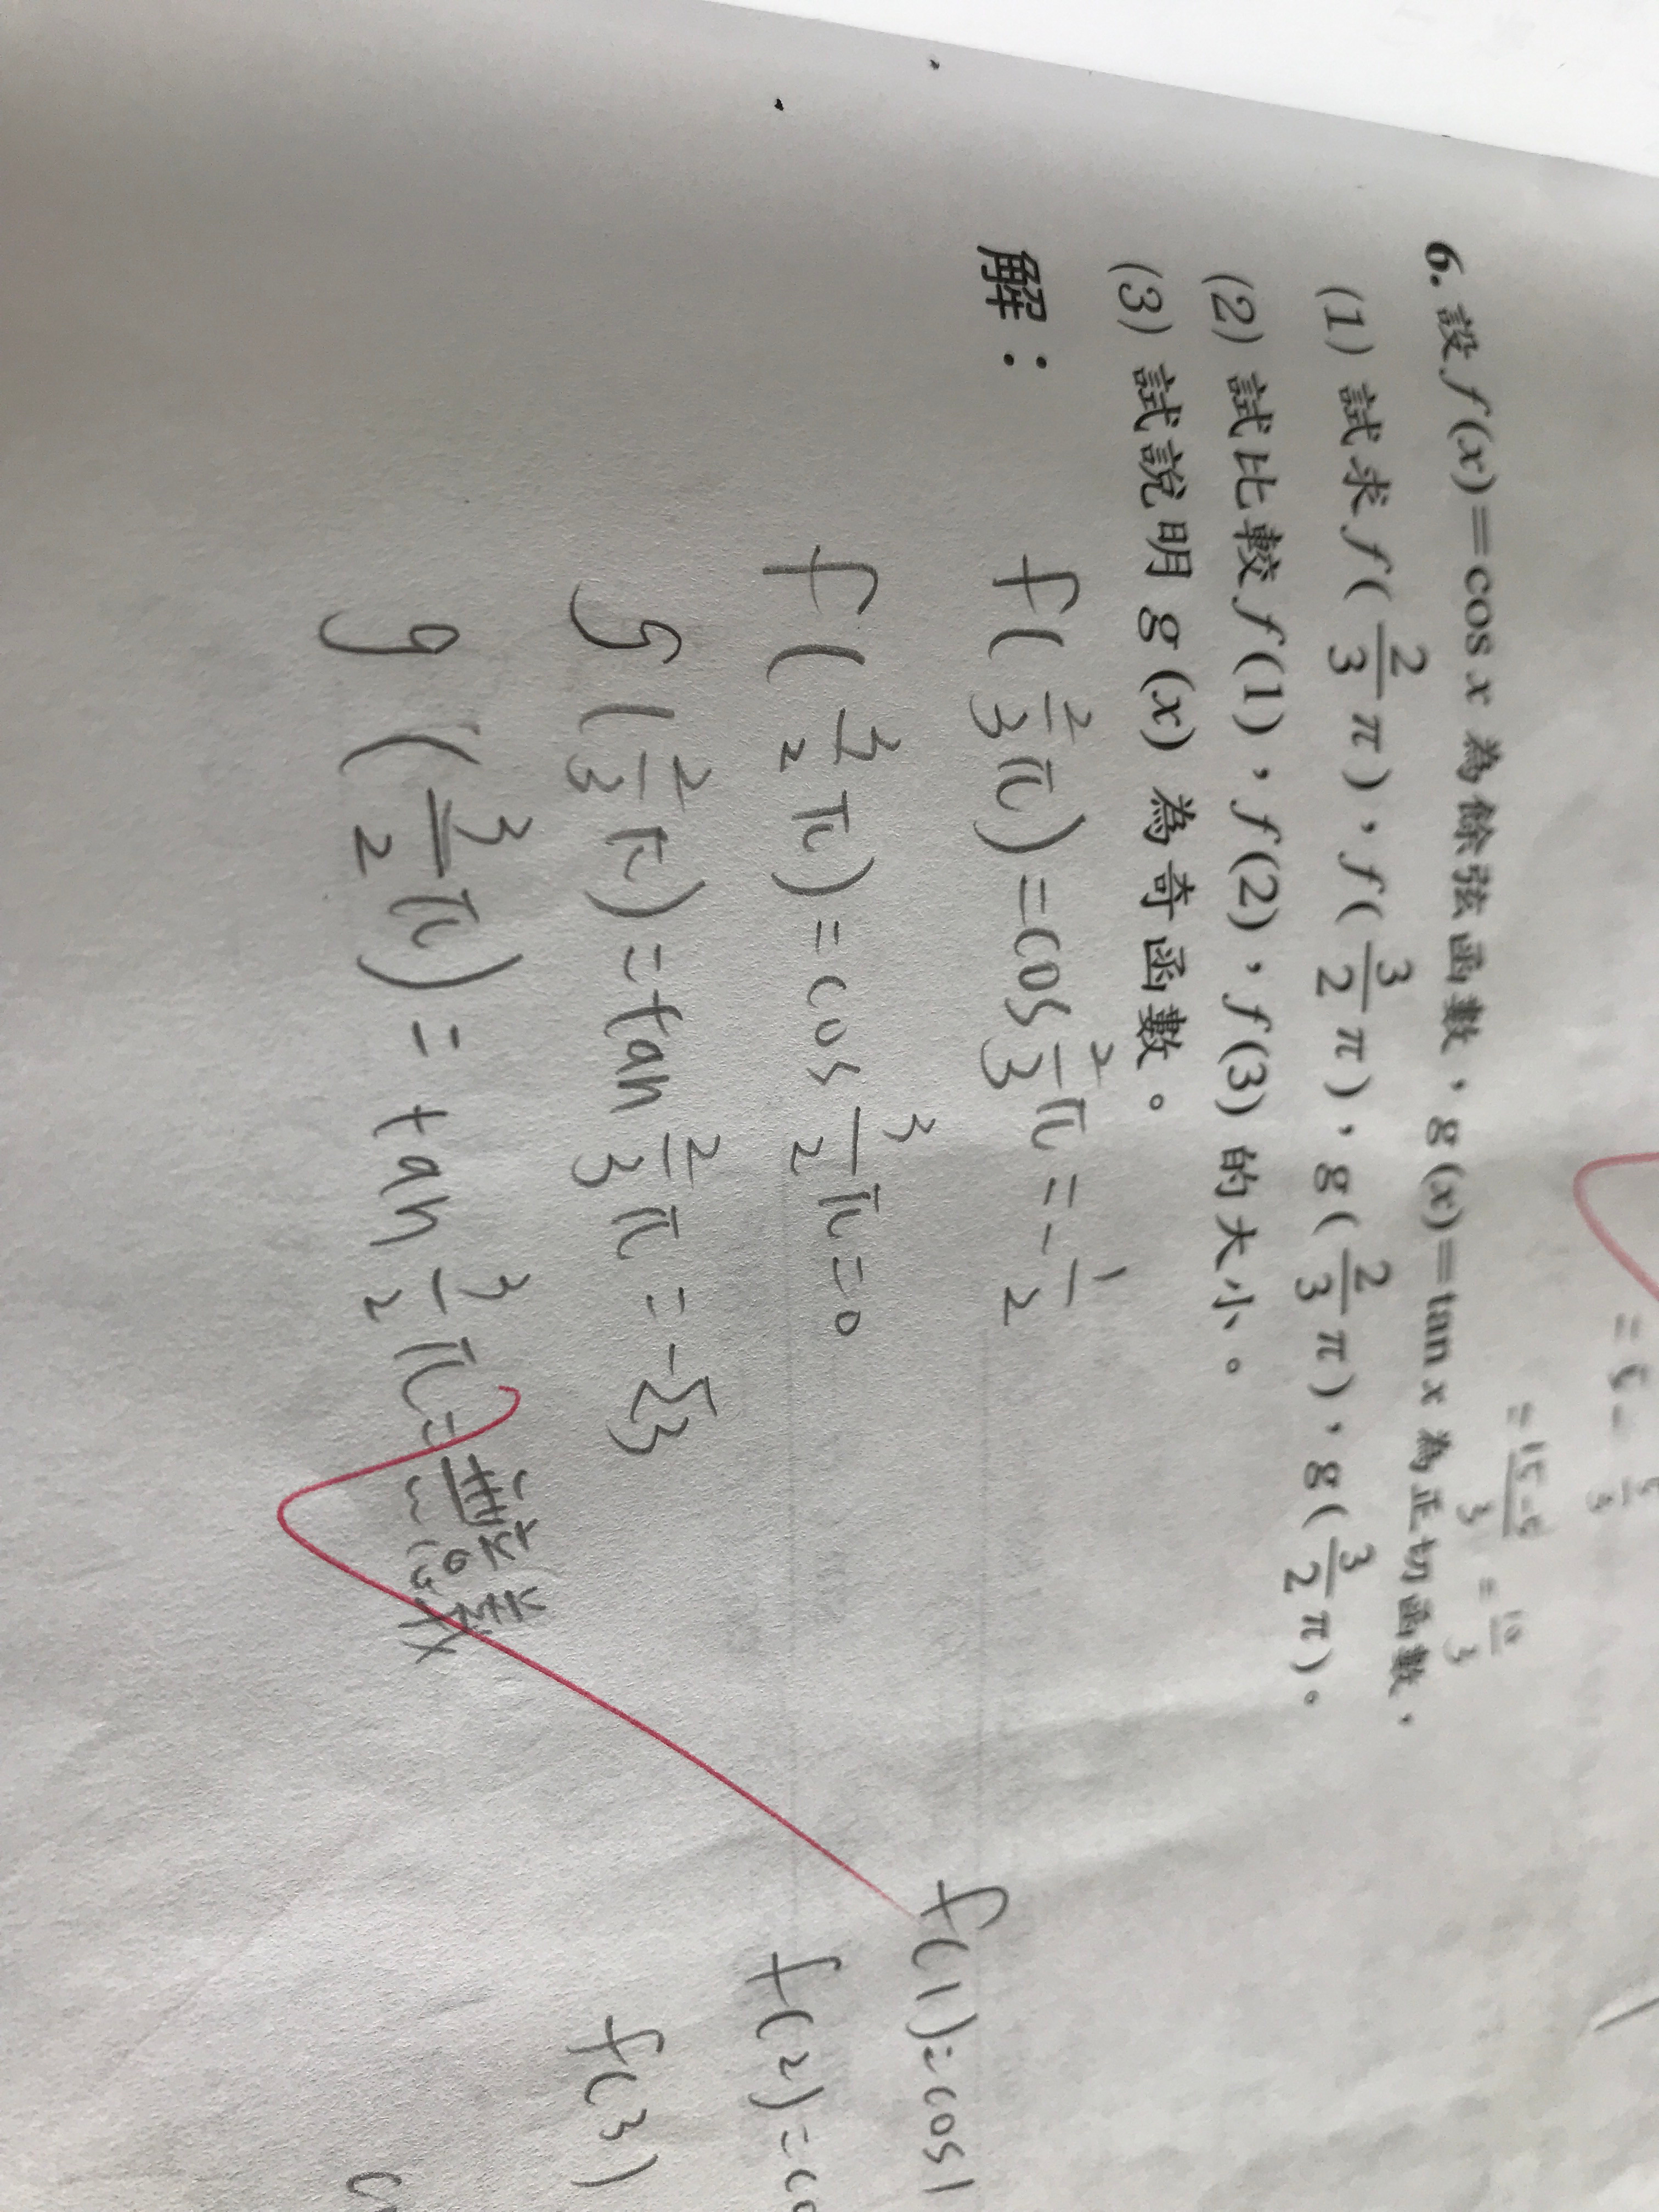 = 5 - 5/3
= 15-5/3 = 10/3
6. 設 f(x)=cos x 為餘弦函數，g(x)=tan x 為正切函數，
(1) 試求 f(2/3 π)，f(3/2 π)，g(2/3 π)，g(3/2 π)。
(2) 試比較 f(1)，f(2)，f(3) 的大小。
(3) 試說明 g(x) 為奇函數。
解：
f(2/3 π)=cos 2/3 π = -1/2
f(3/2 π)=cos 3/2 π=0
g(2/3 π)=tan 2/3 π = -√3
g(3/2 π) = tan 3/2 π=無意義
f(1)=cos1
f(2)=co
f(3)